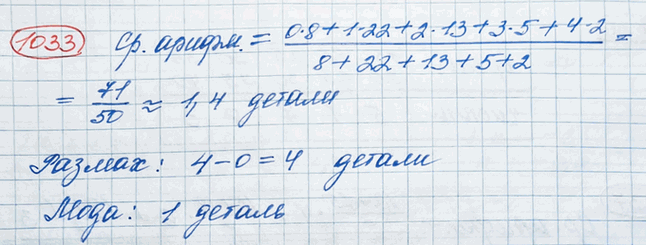 1033 Ср. арифм. = (0·8+1·22+2·13+3·5+4·2)/(8+22+13+5+2) =
= 71/50 ≈ 1,4 детали
Размах: 4-0=4 детали
Мода: 1 деталь